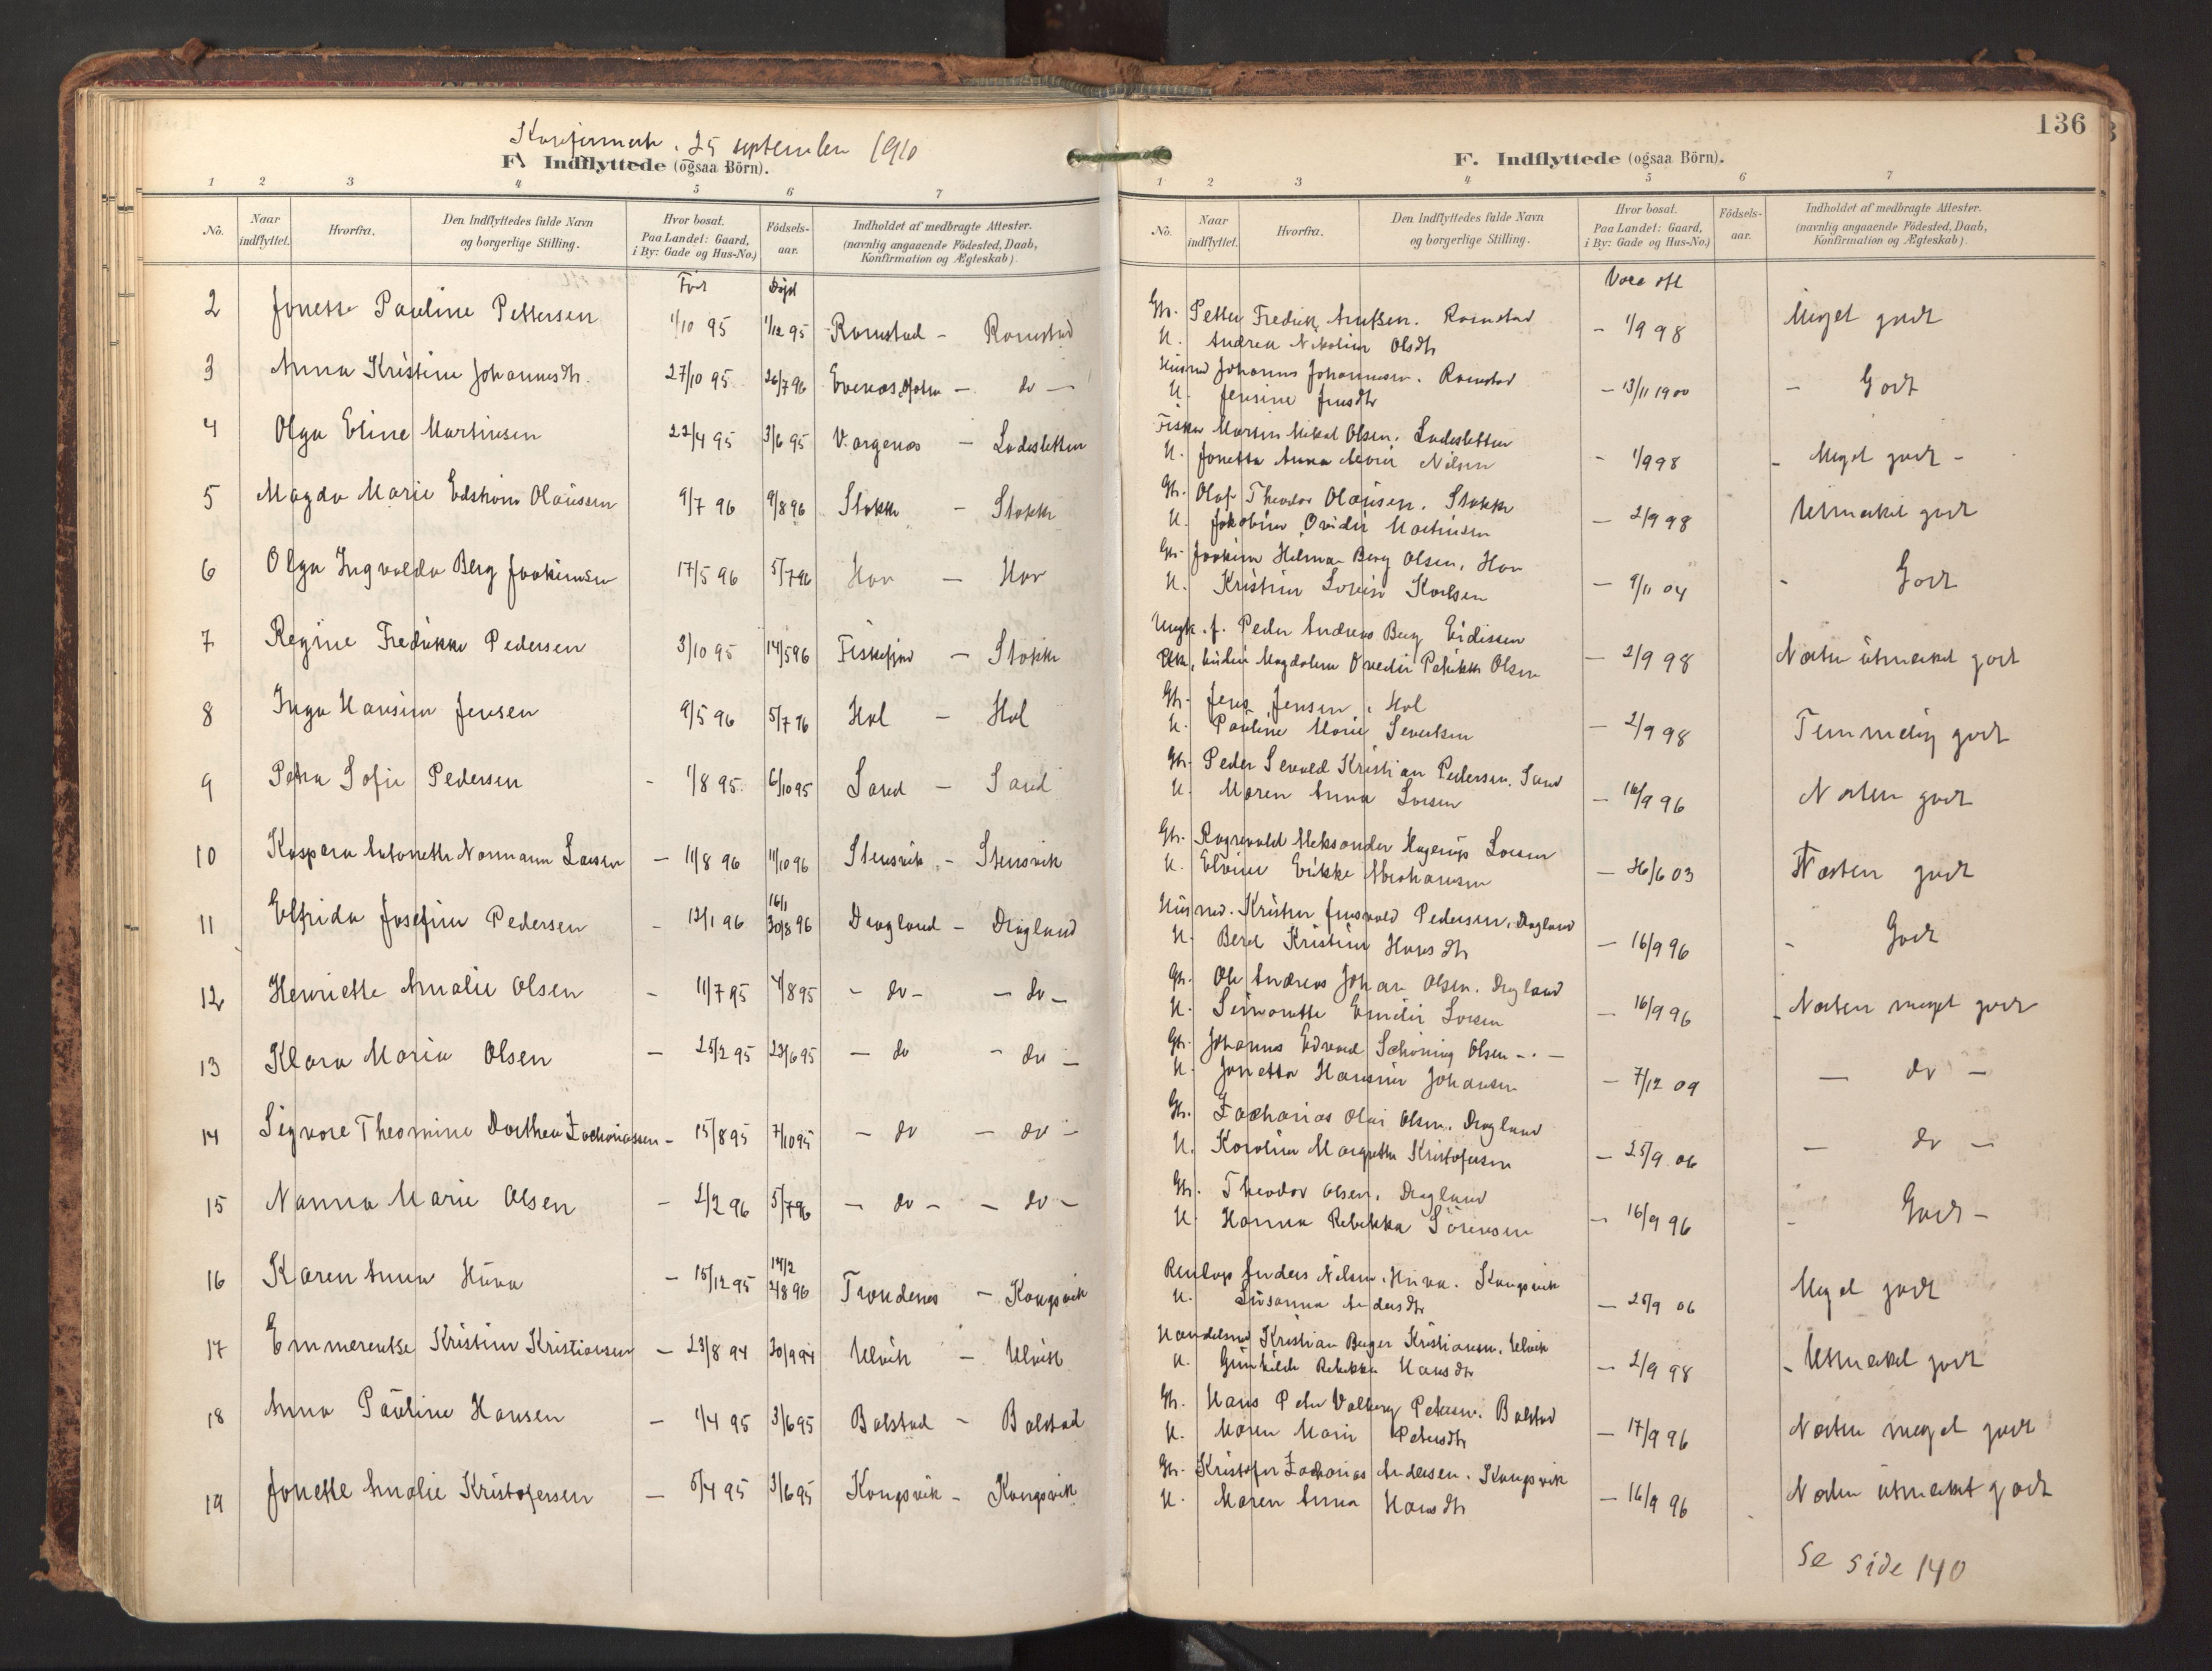 Konfirmerte 25 september 1910
F. Indflyttede (ogsaa Börn).
1 2 3 4 5 6 7
No. Naar indflyttet. Hvorfra. Den Indflyttedes fulde Navn og borgerlige Stilling. Hvor bosat. Paa Landet: Gaard, i By: Gade og Hus-No.) Födsels-aar. Indholdet af medbragte Attester. (navnlig angaaende Födested, Daab, Konfirmation og Ægteskab).
Föd Döpt
2 Jonette Pauline Pettersen 1/10 95 1/12 95 Ramstad - Ramstad
3 Anna Kristine Johannesdtr. 27/10 95 26/7 96 Evenes - do -
4 Olga Eline Martinsen 22/4 95 3/6 95 V. - Ladesletten
5 Magda Marie Edstrøm Olaussen 9/7 96 9/8 96 Stokke - Stokke
6 Olga Ingvalda Berg Joakimsen 17/5 96 5/7 96 Hov - Hov
7 Regine Fredrikke Pedersen 3/10 95 14/5 96 Fiskefjord - Stokke
8 Inga Hansine Jensen 9/5 96 5/7 96 Hol - Hol
9 Petra Sofie Pedersen - 1/8 95 6/10 95 Sand - Sand
10 Kaspara Antonette Normann Larsen - 11/8 96 11/10 96 Stensvik - Stensvik
11 Elfrida Josefine Pedersen - 12/1 96 16/1 30/8 96 Dragland - Dragland
12 Henriette Amalie Olsen - 11/7 95 4/8 95 - do - - do -
13 Klara Maria Olsen - 25/2 95 23/6 95 - do - do -
14 Signore Theomine Dorthea Zachariassen - 15/8 95 7/10 95 - do - do -
15 Nanna Marie Olsen - 2/2 96 5/7 96 - do - - do -
16 Karen Anna Huva - 15/12 95 14/2 2/8 96 Trondenes - Kongsvik
17 Emmerentse Kristine Kristiansen - 23/8 94 30/9 94 Ulvik - Ulvik
18 Anna Pauline Hansen - 1/4 95 3/6 95 Balstad - Balstad
19 Jonette Amalie Kristofersen - 5/4 95 3/6 95 Kongsvik - Kongsvik
136
F. Indflyttede (ogsaa Börn).
1 2 3 4 5 6 7
No. Naar indflyttet. Hvorfra. Den Indflyttedes fulde Navn og borgerlige Stilling. Hvor bosat. Paa Landet: Gaard, i By: Gade og Hus-No.) Födsels-aar. Indholdet af medbragte Attester. (navnlig angaaende Födested, Daab, Konfirmation og Ægteskab).
Gbr. Petter Fredrik. Ramstad
H. Andrea Nikoline Olsdtr - 1/9 98 Meget godt
Husmd Johannes Johannesen. Ramstad
H. Jensine Jensdtr - 13/11 1900 - Godt
Fisker Martin Mikal Olsen. Ladesletten
H. Jonetta Anna Marie Nilsen - 1/9 98 - Meget godt -
Gbr. Olaf Theodor Olausen. Stokke
H. Jakobine Ovidie Martinsen - 2/9 98 Utmerket godt
Gbr. Joakim Hilmar Berg Olsen, Hov
H. Kristine Lovise Karlsen - 9/11 04 - Godt
Ungk. f. Peder Andreas Berg Eidissen
Pike, Magdalena Ovedie Petrikke Olsen - 2/9 98 Næsten utmerket godt
Gbr. Jens Jensen, Hol
H. Pauline Marie Severtsen - 2/9 98 Temmelig godt
Gbr. Peder Sevald Kristian Pedersen. Sand
H. Maren Anna Larsen - 16/9 96 Næsten godt
Gbr. Ragnvald Aleksander Hagerup Larsen
H. Elvine Erikke Abrahamsen - 26/6 03 Næsten godt
Husmd. Kristen Jensvold Pedersen, Dragland
H. Berit Kristine Hansdtr - 16/9 96 - Godt
Gbr. Ole Andreas Johan Olsen. Dragland
H. Simonette Emilie Larsen - 16/9 96 - Næsten meget godt
Gbr. Johannes Edvard Schöning Olsen - . -
H. Jonetta Hansine Johansen - 7/12 09 - do -
Gbr. Zacharias Olai Olsen. Dragland
H. Karoline Margrethe Kristofersen - 25/9 06 - do -
Gbr. Theodor Olsen. Dragland
H. Hanna Rebekka Sörensen - 16/9 96 - Godt -
Anders Nilsen Huva. Kongsvik
H. Susanna Andersdtr - 25/9 06 Meget godt
Handelsmd Kristian Berger Kristiansen, Ulvik
H. Gunhilde Rebekka Hansdtr - 2/9 98 - Utmerket godt
Gbr. Hans Peter Valberg Petersen. Balstad
H. Maren Marie Petersdtr - 17/9 96 Næsten meget godt
Gbr. Kristofer Zacharias Andersen. Kongsvik
H. Maren Anna Hansdtr - 16/9 96 Næsten utmerket godt
Se side 140